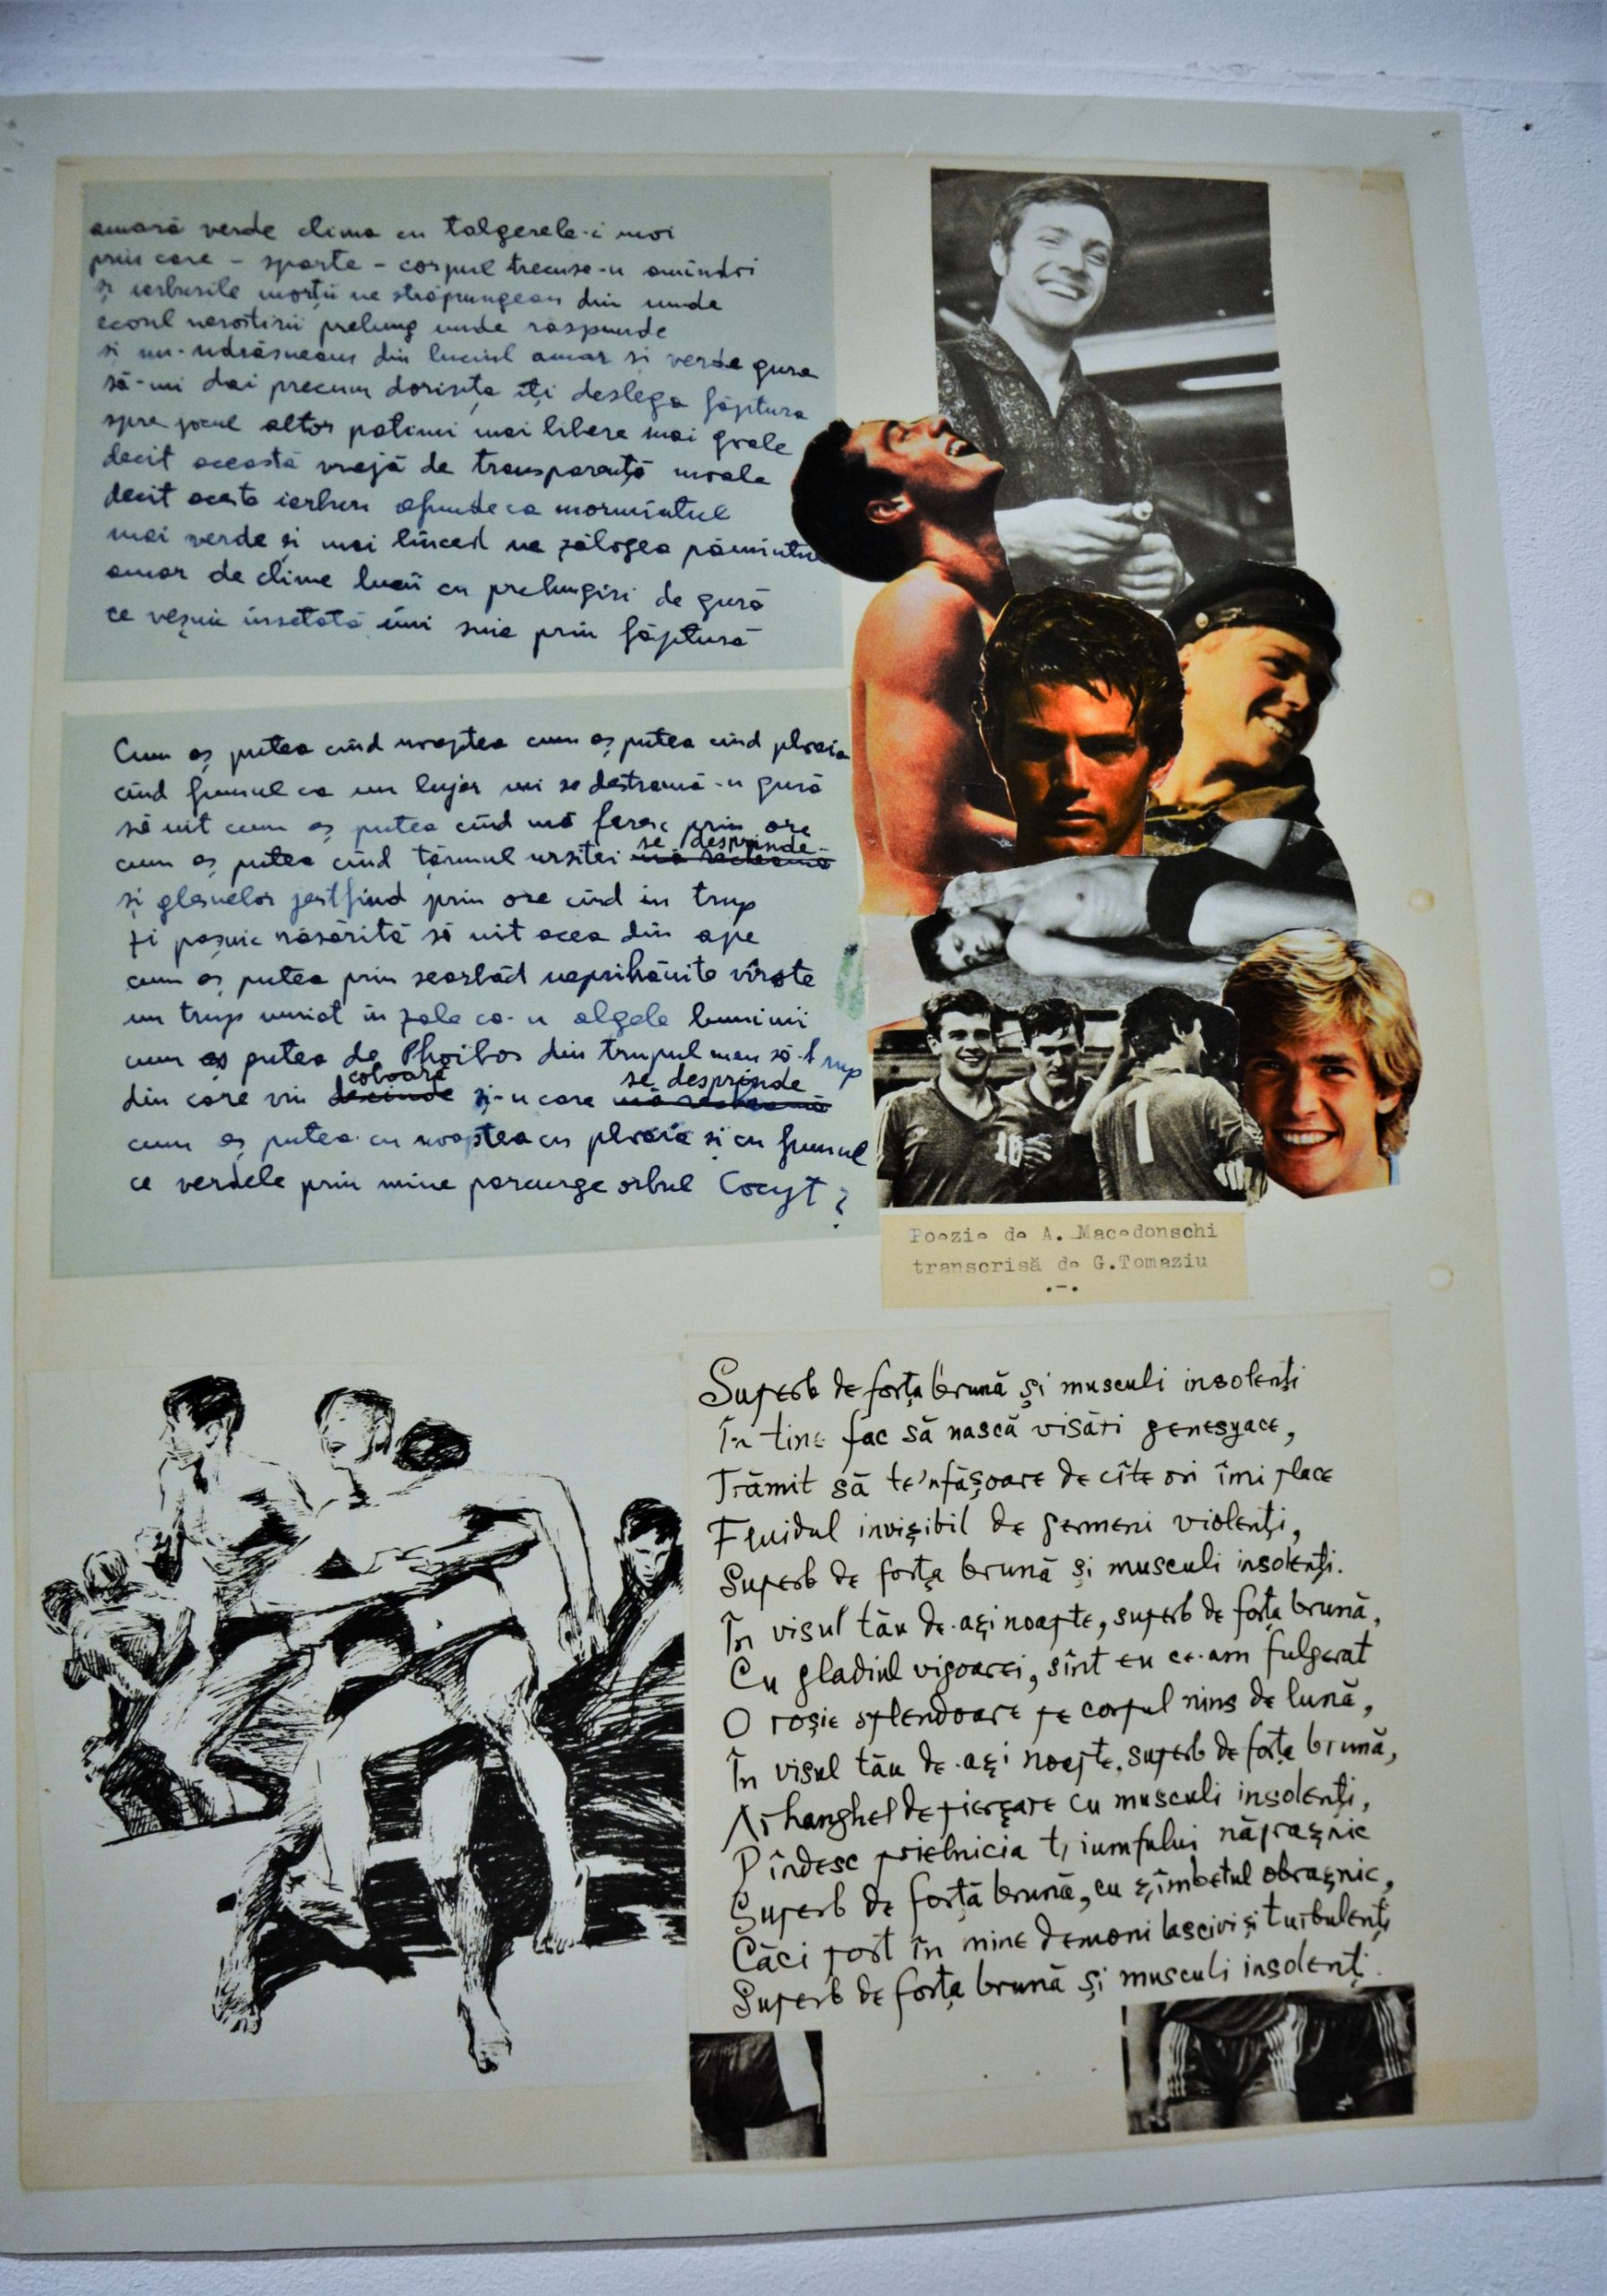 amară verde clima cu talgerele-i moi
prin care - sparte - corpul trecuse-n amîndoi
și ierburile morții ne străpungeau din unde
ecoul nerostirii prelung unde răspunde
și nu-ndrăsneam din luciul amar și verde gura
să-mi dai precum dorința îți deslega făptura
spre jocul altor patimi mai libere mai grele
decît această vrajă de transparență moale
decît aceste ierburi afunde ca mormîntul
mai verde și mai lînced ne zălogea pămîntul
amar de clime lucii cu prelungiri de gură
ce veșnic însetată îmi suie prin făptură
Cum aș putea cînd noaptea cum aș putea cînd ploaia
cînd fumul ca un lujer mi se destramă-n gură
să uit cum aș putea cînd mă feresc prin ore
cum aș putea cînd țărmul ursitei se desprinde
și gleznelor jertfind prin ore cînd in trup
ți pașnic răsărită să uit acea din ape
cum aș putea prin searbăd neprihănite vîrste
un trup muiat în zale ca-n algele luminii
cum aș putea de Phoibos din trupul meu să-l rup
din care vin coboară și-n care se desprinde
cum aș putea cu noaptea cu ploaia și cu fumul
ce verdele prin mine parcurge orbul Cocyt?
16
1
Poezie de A. Macedonschi
transcrisă de G.Tomaziu
.-.
Superb de forța brună și musculi insolenți
În tine fac să nască visări genesyace,
Trămit să te'nfășoare de cîte ori îmi place
Fluidul invizibil de germeni violenți,
Superb de forța brună și musculi insolenți.
În visul tău de azi noapte, superb de forța brună,
Cu gladiul vigoarei, sînt eu ce-am fulgerat
O roșie splendoare pe corpul nins de lună,
În visul tău de azi noapte, superb de forța brună,
Arhanghel de pierzare cu musculi insolenți,
Pîndesc prielnicia triumfului năpraznic
Superb de forță brună, cu zîmbetul obraznic,
Căci port în mine demoni lascivi și turbulenți
Superb de forța brună și musculi insolenți.